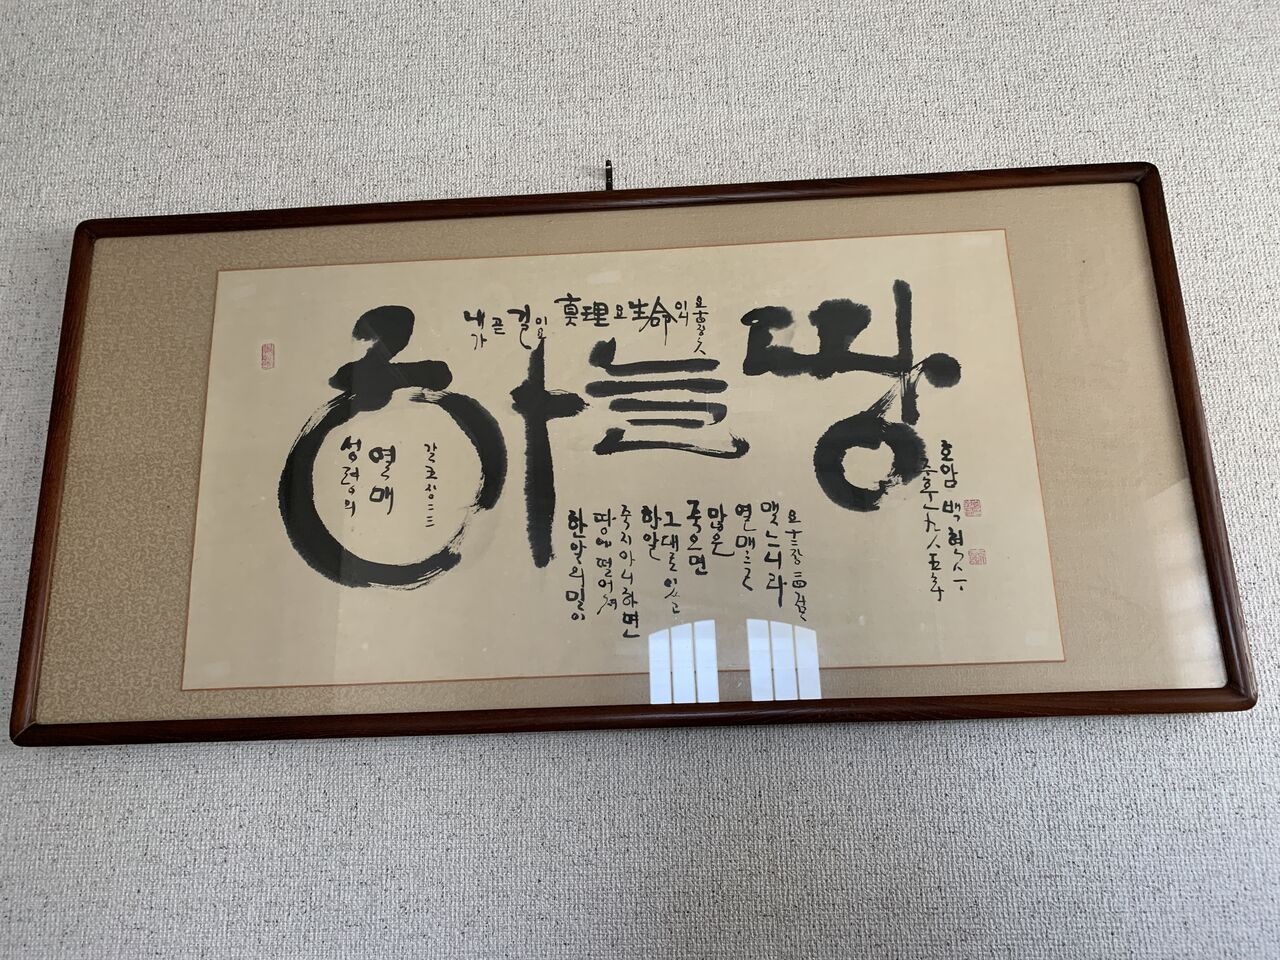 하늘땅
내가 곧 길이요 眞理요 生命이니
요 十四장 六
성령의
열매
갈 五장 二二
한알의 밀이
땅에 떨어져
죽지 아니하면
한알
그대로 있고
죽으면
많은
열매를
맺느니라
요 十二장 二四절
호암 백
一九八五年